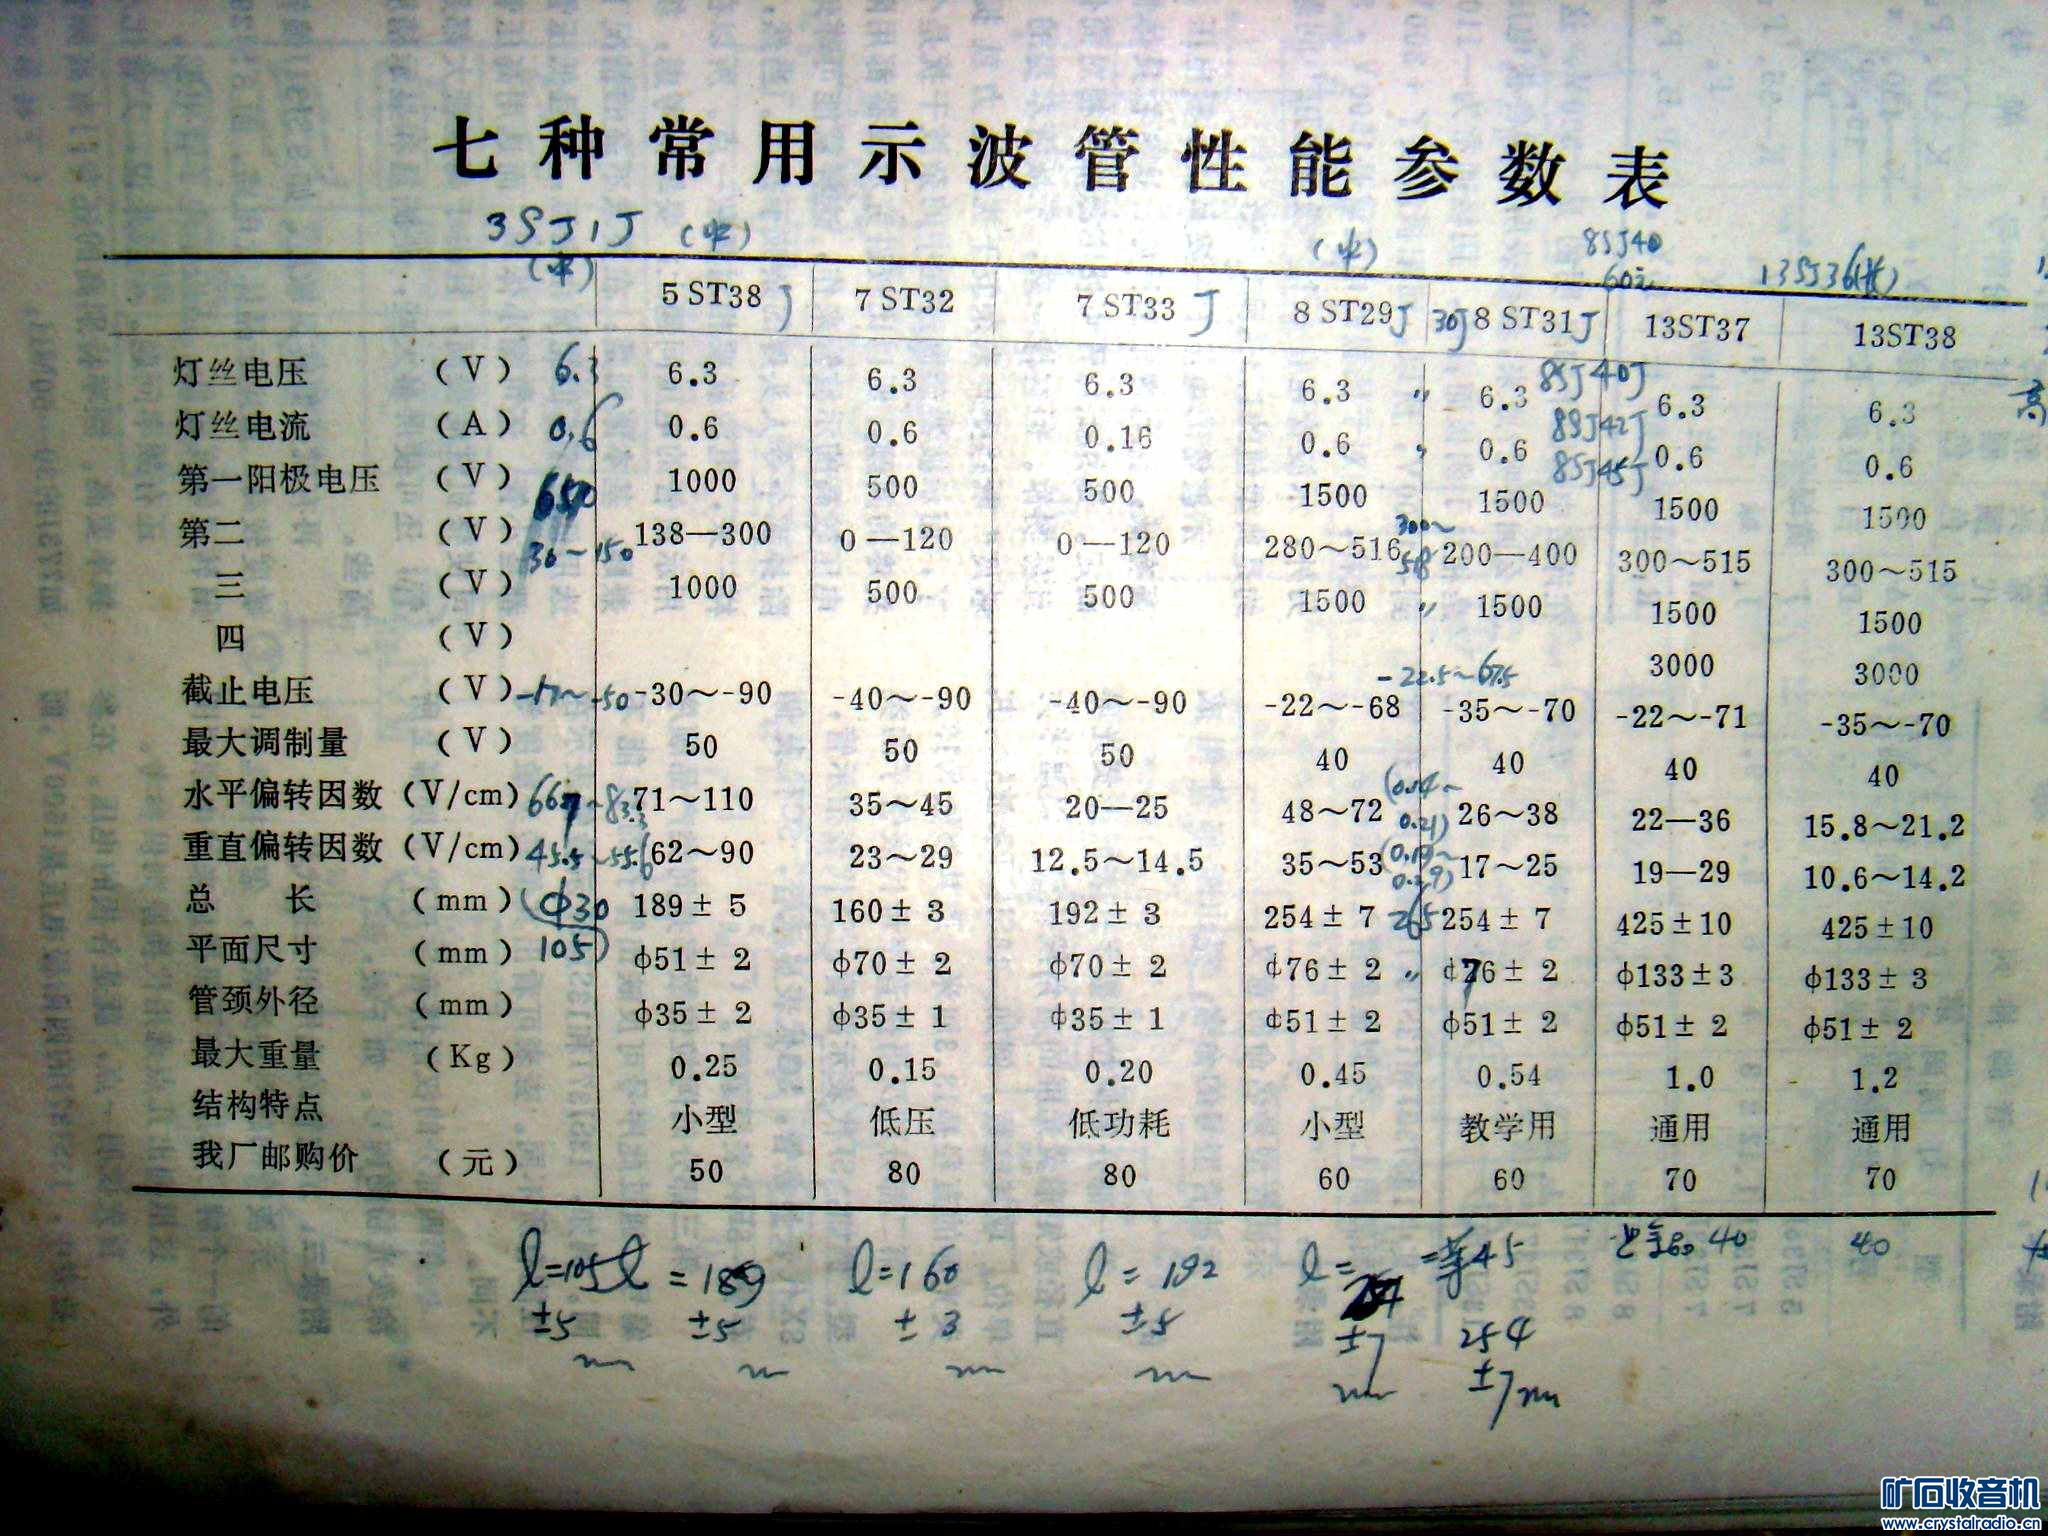 七种常用示波管性能参数表
3SJ1J (中) (中) 8SJ40
(中) 60元 13SJ36
5ST38J 7ST32 7ST33J 8ST29J 30J 8ST31J 13ST37 13ST38
灯丝电压 (V) 6.3 6.3 6.3 6.3 6.3 〃 6.3 8SJ40J 6.3 6.3
灯丝电流 (A) 0.6 0.6 0.6 0.16 0.6 〃 0.6 8SJ42J 0.6 0.6
第一阳极电压 (V) 650 1000 500 500 1500 1500 8SJ45J 1500 1500
第二 (V) 30~150 138—300 0—120 0—120 280~516 300~518 200—400 300~515 300~515
三 (V) 1000 500 500 1500 〃 1500 1500 1500
四 (V) 3000 3000
截止电压 (V) -17~-50 -30~-90 -40~-90 -40~-90 -22~-68 -22.5~67.5 -35~-70 -22~-71 -35~-70
最大调制量 (V) 50 50 50 40 40 40 40
水平偏转因数 (V/cm) 66.7~83.3 71~110 35~45 20—25 48~72 (0.14~0.21) 26~38 22—36 15.8~21.2
重直偏转因数 (V/cm) 45.5~55.6 62~90 23~29 12.5~14.5 35~53 17~25 19—29 10.6~14.2
总 长 (mm) (ф30 189±5 160±3 192±3 254±7 265 254±7 425±10 425±10
平面尺寸 (mm) 105) ф51±2 ф70±2 ф70±2 ф76±2 〃 ф76±2 ф133±3 ф133±3
管颈外径 (mm) ф35±2 ф35±1 ф35±1 ф51±2 ф51±2 ф51±2 ф51±2
最大重量 (Kg) 0.25 0.15 0.20 0.45 0.54 1.0 1.2
结构特点 小型 低压 低功耗 小型 教学用 通用 通用
我厂邮购价 (元) 50 80 80 60 60 70 70
l=105 l=189 l=160 l=192 l= =等45 40 40
±5 ±5 ±3 ±5 ±7 254
±7
矿石收音机
www.crystalradio.cn